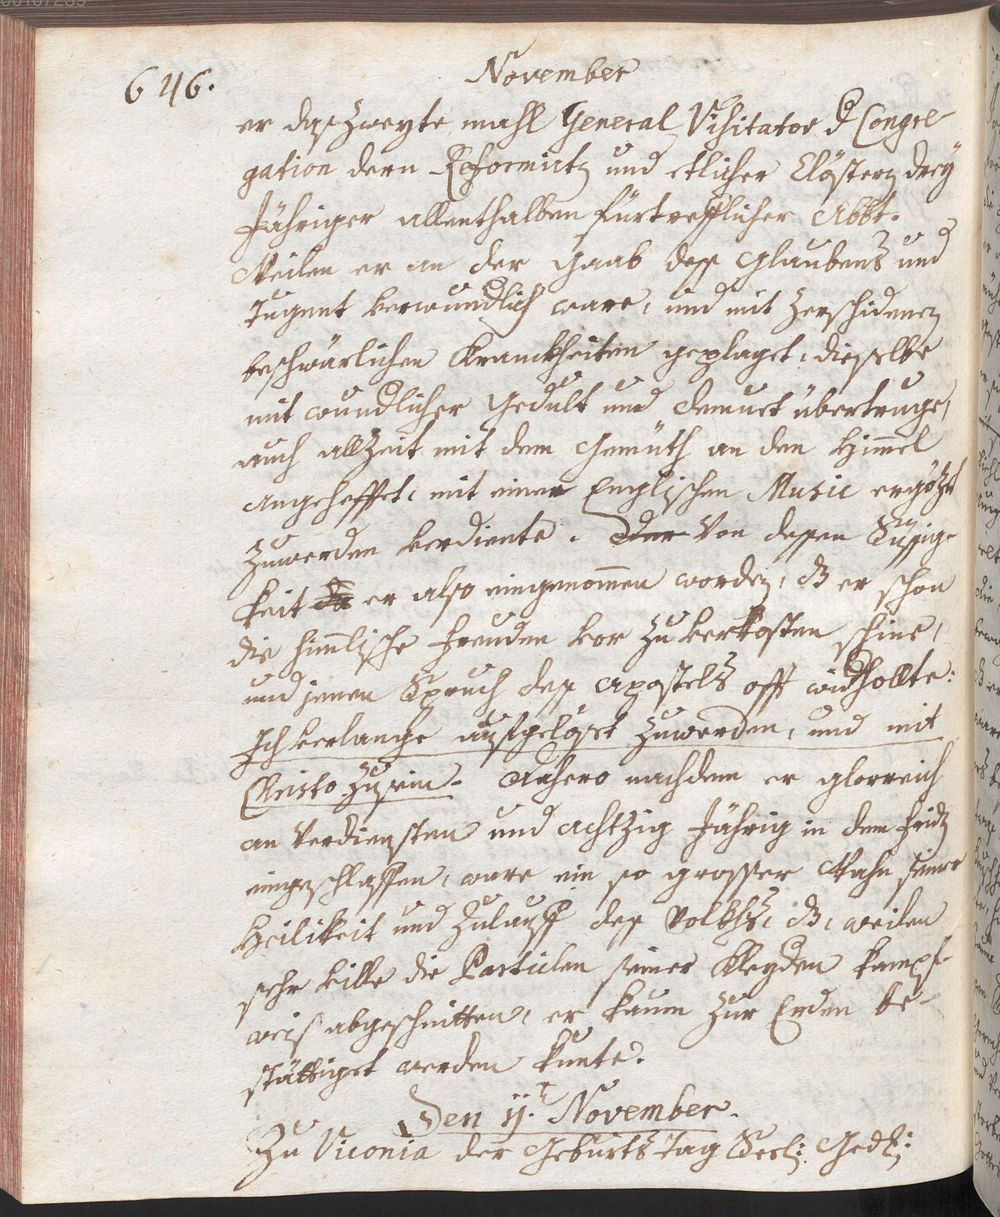 646.
November
er das zweyte mahl General Visitator d Congre-
gation dern Reformirtn und etlicher Clöstern drey
Jähriger allenthalben fürtrefflicher Abbt.
Weilen er an der Gaab deß Glaubens und
Tugent verwundlich ware, und mit Zerschidenen
beschwärlichen Kranckheiten geplaget, dieselbe
mit wundlicher Gedult und Demuet übertruge,
auch allZeit mit dem Gemüth an den Himel
angehefftet, mit einer Englischen Music ergötzt
Zuwerden verdiente. Von dessen Süssig-
keit er also eingenomen worden, dz er schon
die himlische Freuden vor Zu verkosten schine,
und jenen Spruch deß Apostels offt widhollte:
Ich verlange aufgelöset Zuwerden, und mit
Christo Zu sein. Dahero nachdem er glorreich
an Verdiensten und achtzig Jährig in dem fridn
eingeschlaffen, ware ein so grosser Wahn seiner
Heilikeit und Zulauff deß Volckhs, dz, weilen
sehr ville die Particlen seiner Kleyden kampf-
weis abgeschnitten, er kaum Zur Erden be-
stättiget werden kunte.
Den 11.t November.
Zu Viconia der Geburts Tag Seel: Ged: